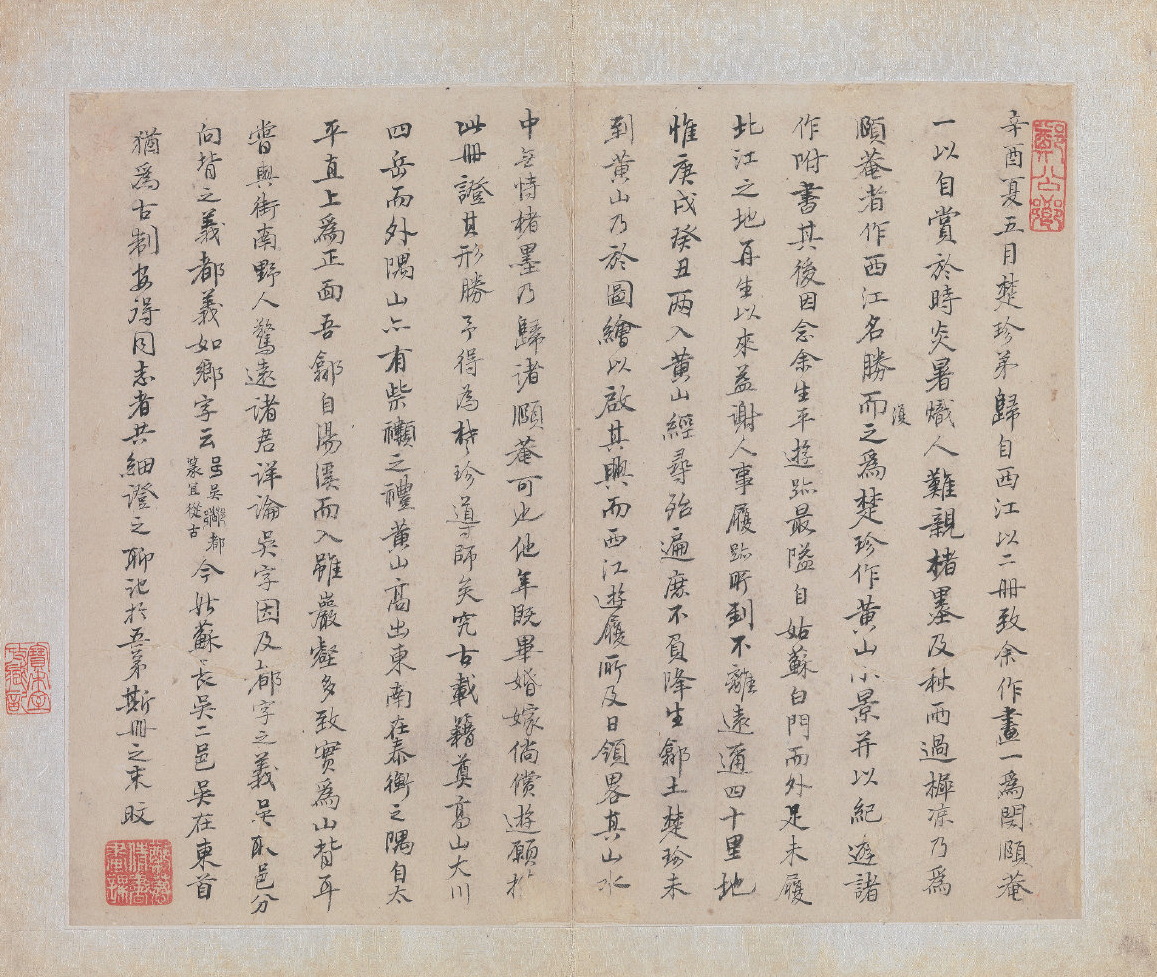 辛酉夏五月楚珍弟歸自西江以二冊致余作畫一為閔頤菴
一以自賞於時炎暑熾人難親楮墨及秋雨過檐凉乃為
頤菴者作西江名勝而之為楚珍作黃山小景并以紀遊諸
復
作附書其後因念余生平遊跡最隘自姑蘇白門而外足未履
北江之地再生以來益謝人事履跡所到不離遠邇四十里地
惟庚戌癸丑兩入黃山經尋殆遍庶不負降生鄣土楚珍未
到黃山乃於圖繪以啟其興而西江遊履所及日領畧其山水
中無恃楮墨乃歸諸頤菴可也他年既畢婚嫁倘償遊願於
此冊證其形勝予得為楚珍導師矣究古載籍奠高山大川
四岳而外隅山亦有柴禷之禮黃山高出東南在泰衡之隅自太
平直上為正面吾鄣自湯溪而入雖巖壑多致實為山背耳
嘗與街南野人驚遠諸君詳論吳字因及都字之義吳取邑分
向背之義都義如鄉字云
今姑蘇長吳二邑吳在東首
猶為古制安得同志者共細證之聊記於吾弟斯冊之末旼